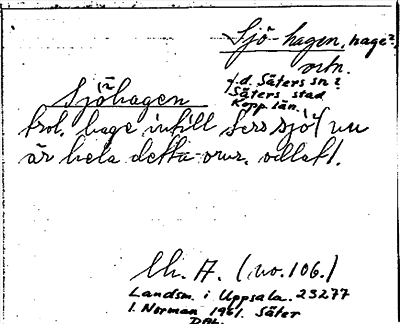 Sjö-hagen, hage?
ortn.
f.d. Säters sn?
Säters stad
Kopp. län.
Sjöhagen
trol. hage intill sjö, nu
är hela detta omr. odlat.
Ch. A. (no. 106.)
Landsm. i Uppsala. 23277
I. Norman 1951. Säter
DAL.